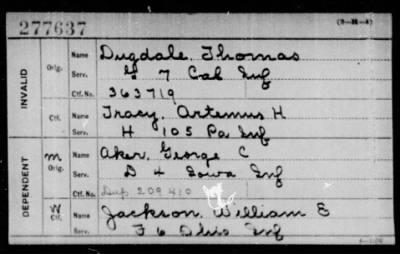 277637 (3-X-4)
INVALID
Orig. Name Dugdale, Thomas
Serv. G 7 Cal Inf
Ctf. No. 363719
Ctf. Name Tracy, Artemus H
Serv. H 105 Pa Inf
DEPENDENT
m Orig. Name Aker, George C
Serv. D 4 Iowa Inf
Ctf. No. Dup 209 410
W Ctf. Name Jackson, William E
Serv. F 6 Ohio Inf